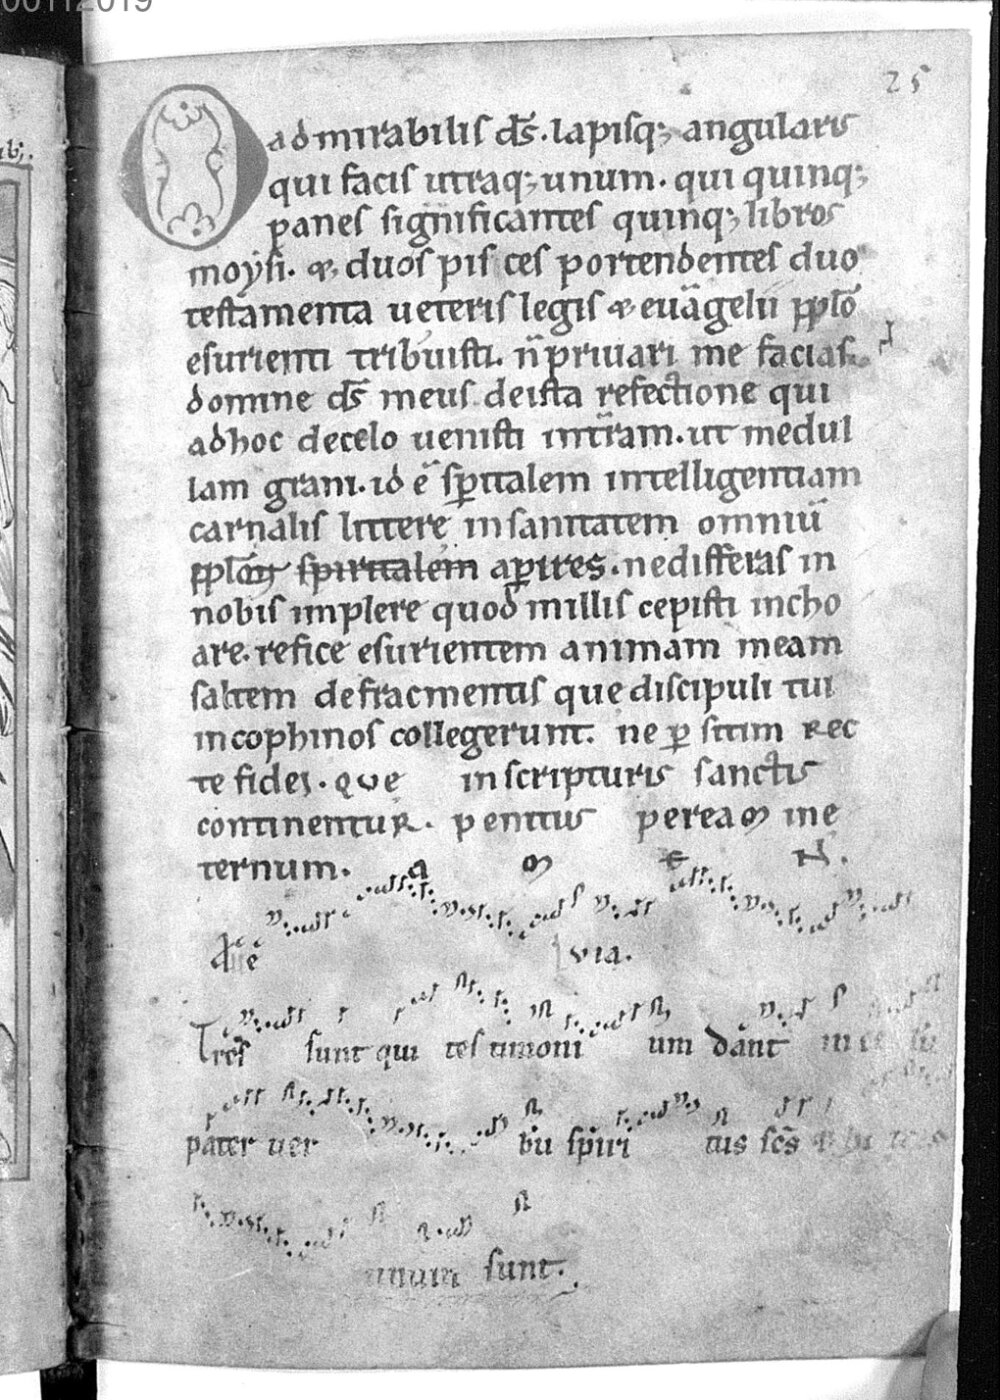 00112019
25
ib;.
O admirabilis d̅s. lapisq; angularis
qui facis utraq; unum. qui quinq;
panes significantes quinq; libros
moysi. & duos pisces portendentes duo
testamenta ueteris legis & eua̅gelii pp̅lo
esurienti tribuisti. n̅ priuari me facias
domine d̅s meus deista refectione qui
adhoc decelo uenisti intr̅am. ut medul
lam grani. id e̅ sp̅italem intelligentiam
carnalis littere insanitatem omniu̅
apires. nedifferas in
nobis implere quod inillis cepisti incho
are. refice esurientem animam meam
saltem defracmentis que discipuli tui
incophinos collegerunt. ne p̱ sitim rec
te fidei. que in scripturis sanctis
continentur. penitus peream ine
ternum. a m e n.
uia.
Tres sunt qui testimoni um dant in
pater uer bu̅ sp̅iri tus sc̅s
unum sunt.